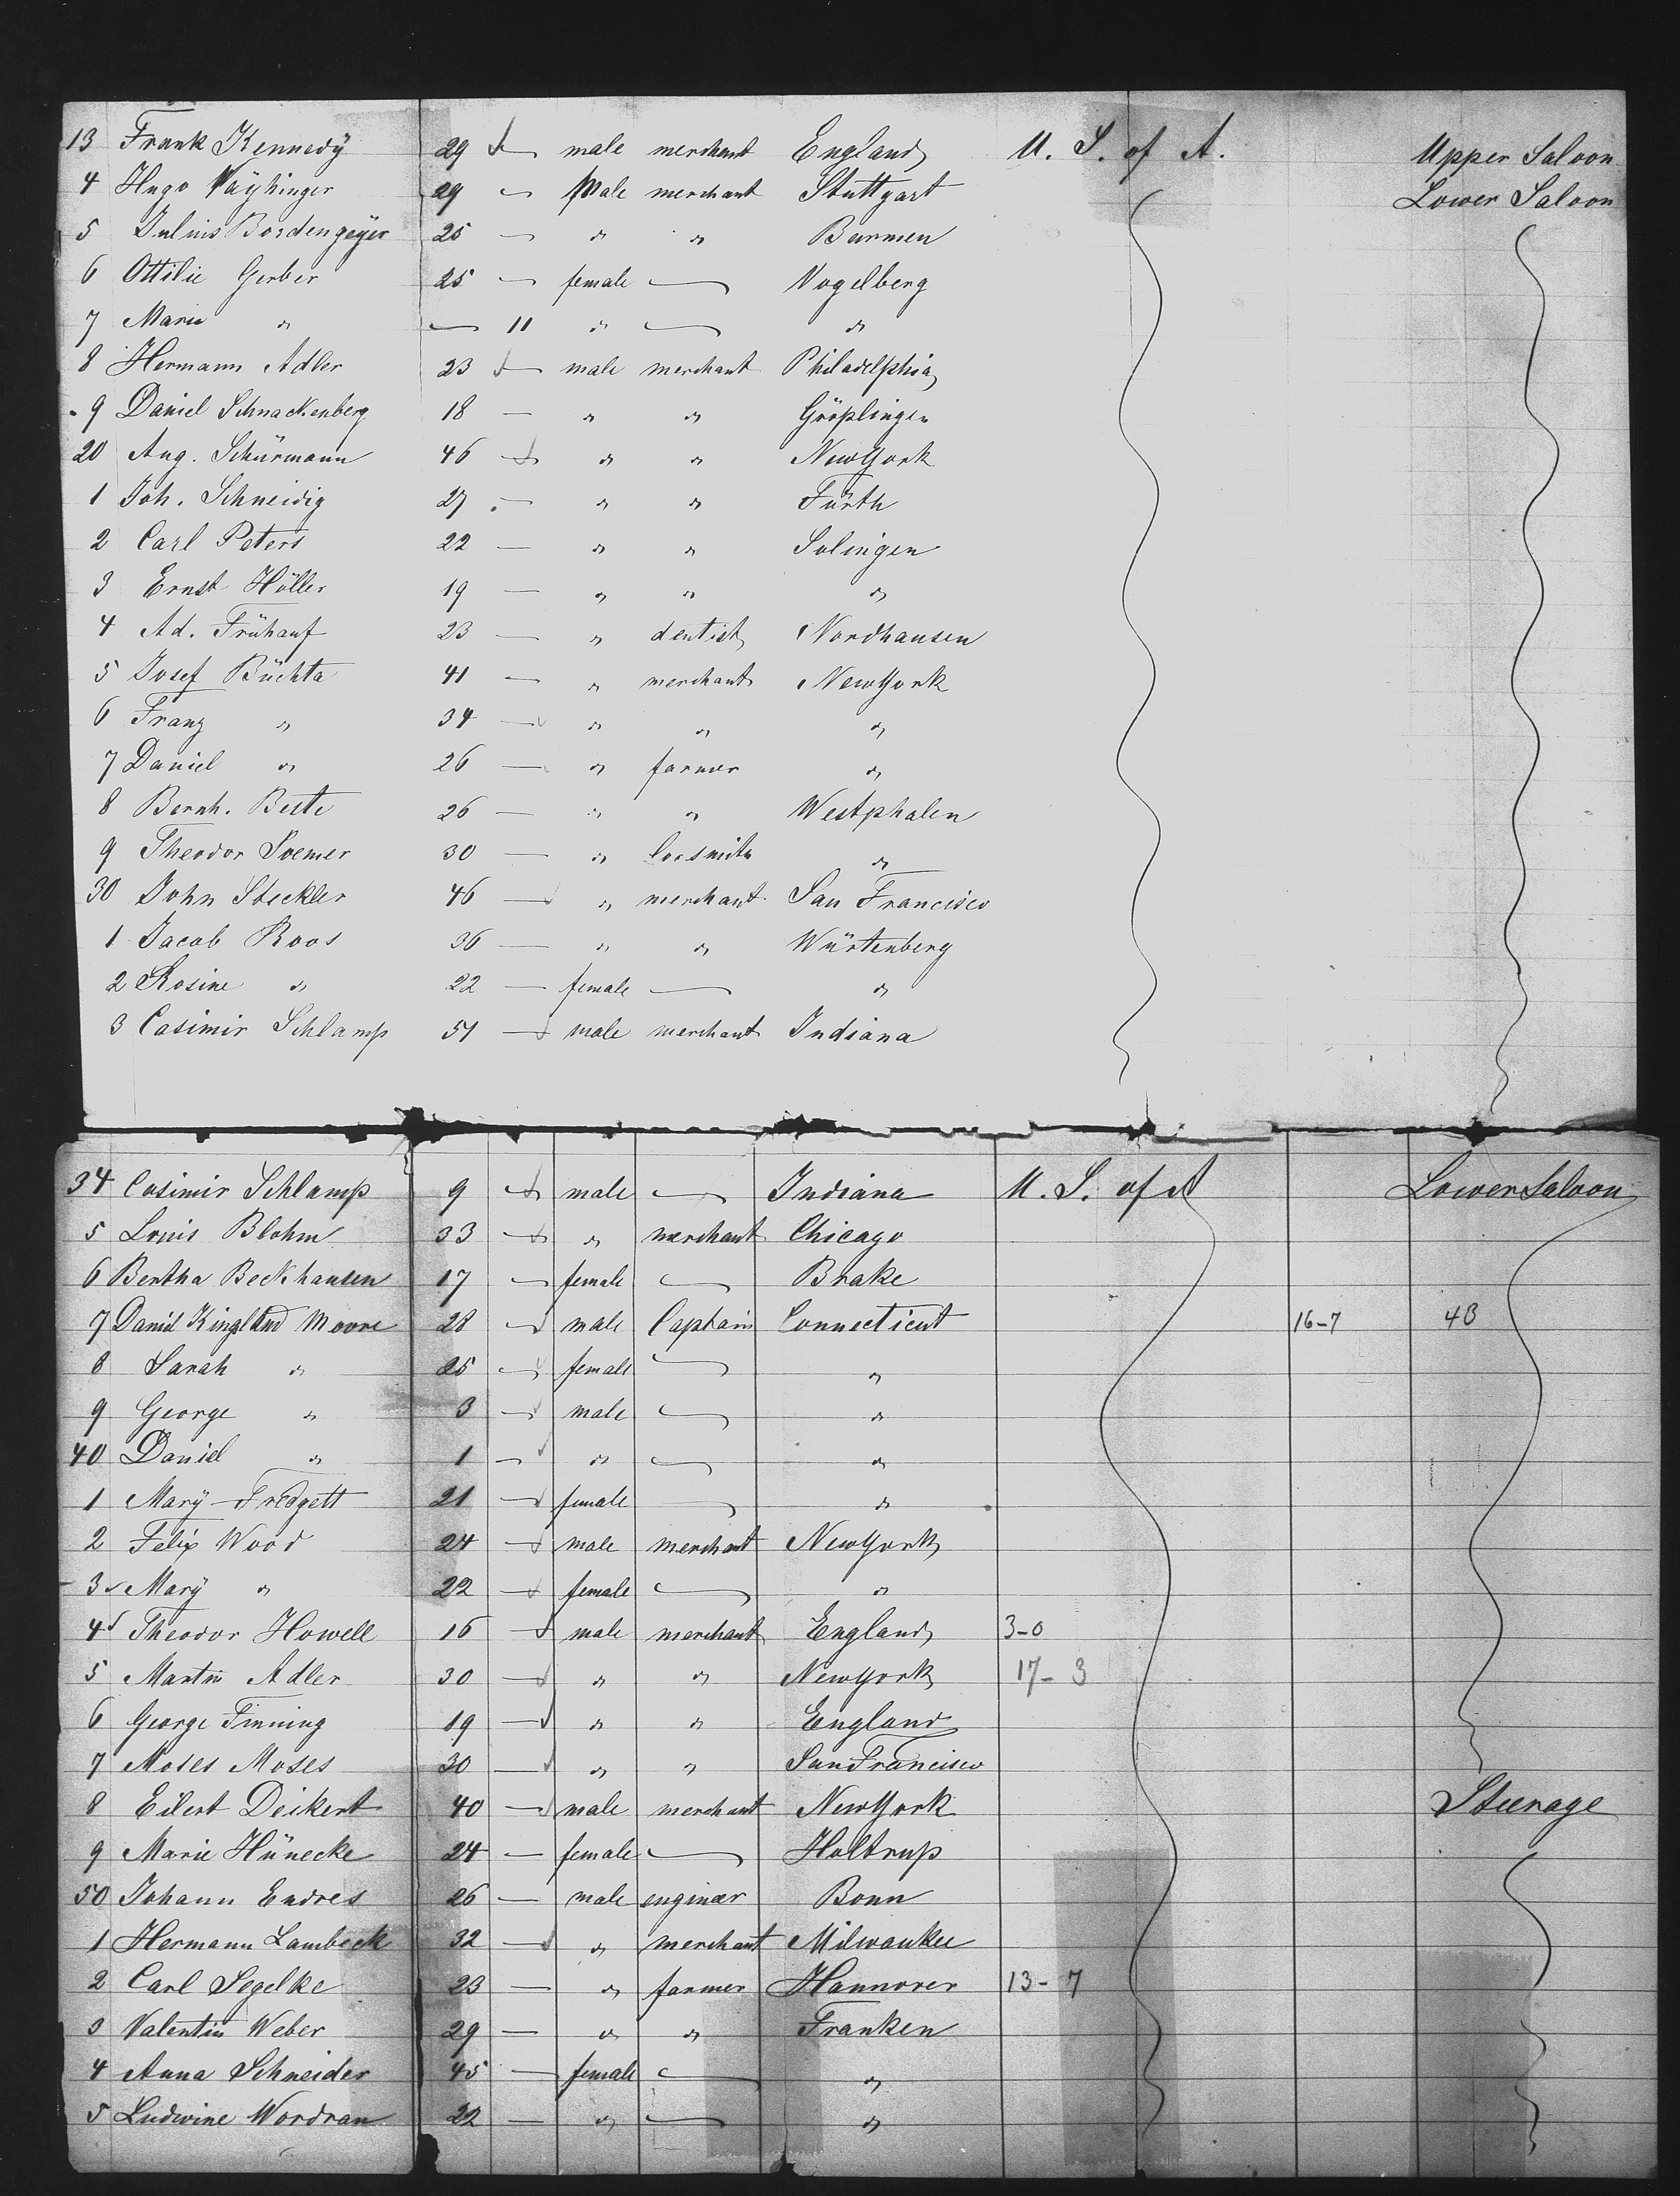 13 Frank Kennedÿ 29 — male merchant England U. S. of A. Upper Saloon
4 Hugo Vaÿhinger 29 — Male merchant Stuttgart Lower Saloon
5 Julius Bordengeÿer 25 — " " Barmen
6 Ottilie Gerber 25 — female — Vogelberg
7 Marie " — 11 " — "
8 Hermann Adler 23 — male merchant Philadelphia
9 Daniel Schnackenberg 18 — " " Gröplingen
20 Aug. Schürmann 46 — " " NewYork
1 Joh. Schneidig 27 — " " Fürth
2 Carl Peters 22 — " " Solingen
3 Ernst Höller 19 — " " "
4 Ad. Frühauf 23 — " dentist Nordhausen
5 Josef Büchta 41 — " merchant NewYork
6 Franz " 34 — " " "
7 Daniel " 26 — " farmer "
8 Bernh. Beste 26 — " " Westphalen
9 Theodor Soemer 30 — " locsmith "
30 John Steckler 46 — " merchant San Francisco
1 Jacob Roos 36 — " " Würtenberg
2 Rosine " 22 — female — "
3 Casimir Schlamp 51 — male merchant Indiana
34 Casimir Schlamp 9 — male — Indiana U. S. of A Lower Saloon
5 Louis Blohm 33 — " merchant Chicago
6 Bertha Beckhausen 17 — female — Brake
7 Daniel Kingland Moore 28 — male Captain Connecticut 16-7 4B
8 Sarah " 25 — female — "
9 George " 3 — male — "
40 Daniel " 1 — " — "
1 Marÿ Fredgett 21 — female — "
2 Felix Wood 24 — male merchant NewYork
3 Marÿ " 22 — female — "
4 Theodor Howell 16 — male merchant England 3-0
5 Martin Adler 30 — " " NewYork 17-3
6 George Finning 19 — " " England
7 Moses Moses 30 — " " San Francisco
8 Eilert Deikert 40 — male merchant NewYork Steerage
9 Marie Hünecke 24 — female — Holtrup
50 Johann Endres 26 — male engineer Bonn
1 Hermann Lambeck 32 — " merchant Milwaukee
2 Carl Segelke 23 — " farmer Hannover 13-7
3 Valentin Weber 29 — " " Franken
4 Anna Schneider 45 — female — "
5 Ludwine Wordran 22 — " — "